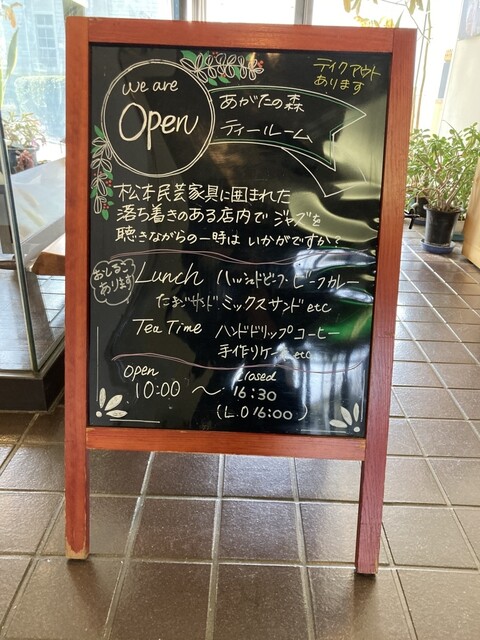 we are
Open
テイクアウト
あります
あがたの森
ティールーム
松本民芸家具に囲まれた
落ち着きのある店内で ジャズを
聴きながらの一時は いかがですか?
おしるこ
あります
Lunch ハッシュドビーフ・ビーフカレー
たまごサンド ミックスサンド etc
Tea Time ハンドドリップコーヒー
手作りケーキ etc
Open Closed
10:00 〜 16:30
(L.O 16:00)